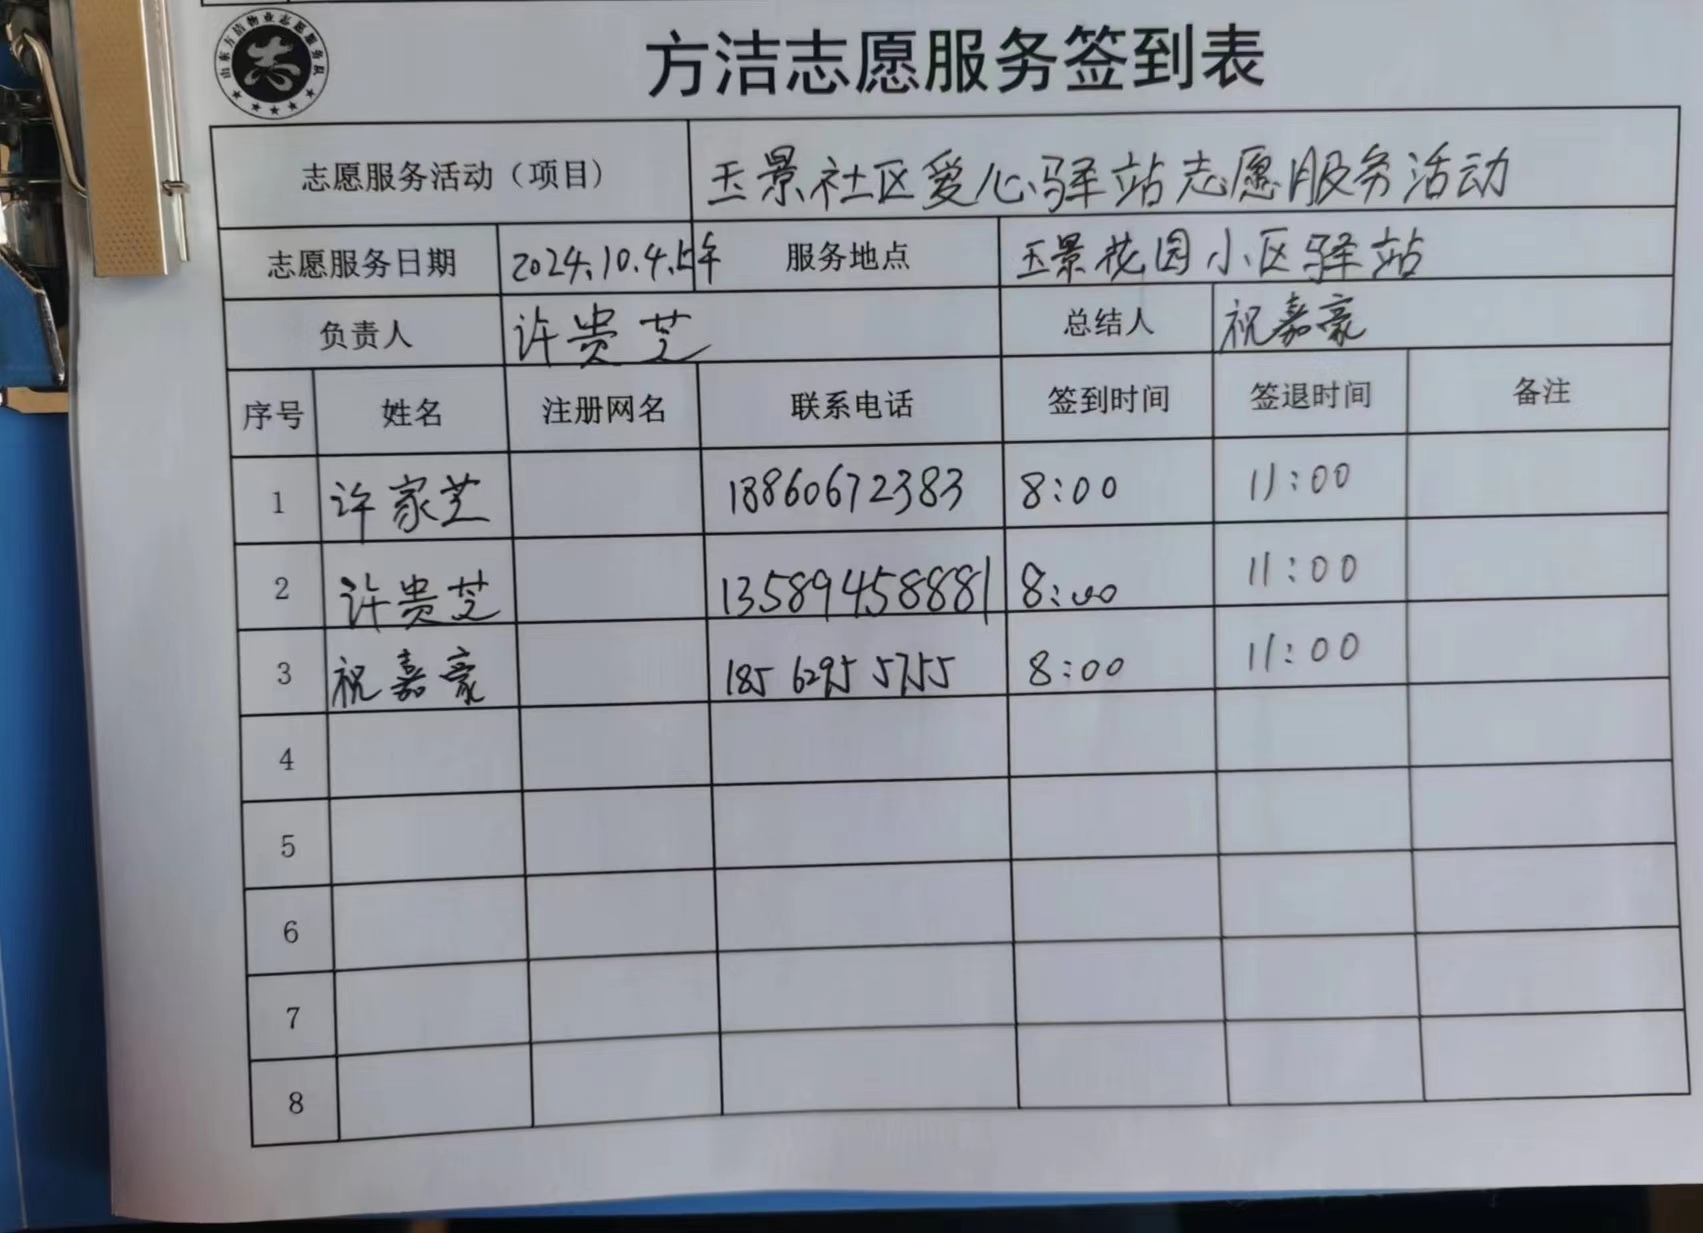 山东方洁物业志愿服务队
志
方洁志愿服务签到表
志愿服务活动（项目） 玉景社区爱心驿站志愿服务活动
志愿服务日期 2024.10.4.上午 服务地点 玉景花园小区驿站
负责人 许贵芝 总结人 祝嘉豪
序号 姓名 注册网名 联系电话 签到时间 签退时间 备注
1 许家芝 18860672383 8:00 11:00
2 许贵芝 13589458881 8:00 11:00
3 祝嘉豪 185 6295 5755 8:00 11:00
4
5
6
7
8